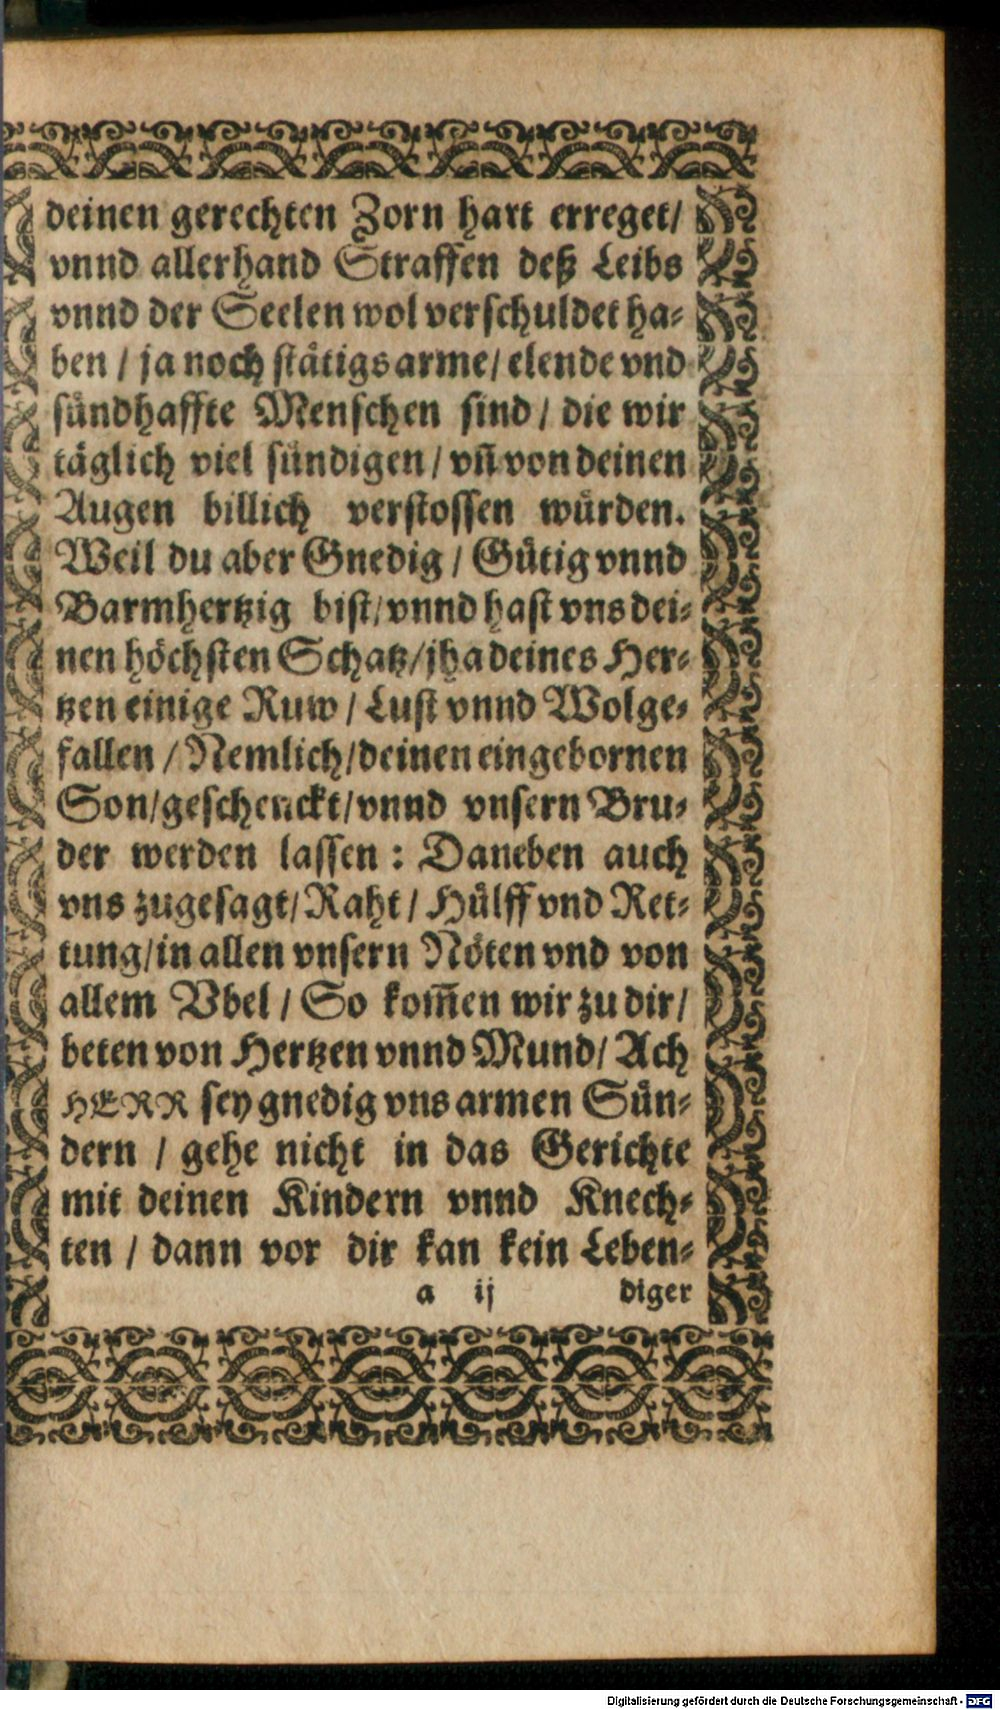 deinen gerechten Zorn hart erreget/
vnnd allerhand Straffen deß Leibs
vnnd der Seelen wol verschuldet ha-
ben / ja noch stätigs arme/ elende vnd
sündhaffte Menschen sind / die wir
täglich viel sündigen / vn̄ von deinen
Augen billich verstossen würden.
Weil du aber Gnedig / Gütig vnnd
Barmhertzig bist/ vnnd hast vns dei-
nen höchsten Schatz/ jha deines Her-
tzen einige Ruw / Lust vnnd Wolge-
fallen / Nemlich/ deinen eingebornen
Son/ geschenckt/ vnnd vnsern Bru-
der werden lassen : Daneben auch
vns zugesagt/ Raht / Hülff vnd Ret-
tung/ in allen vnsern Nöten vnd von
allem Vbel / So kom̄en wir zu dir/
beten von Hertzen vnnd Mund/ Ach
HERR sey gnedig vns armen Sün-
dern / gehe nicht in das Gerichte
mit deinen Kindern vnnd Knech-
ten / dann vor dir kan kein Leben-
a ij diger
Digitalisierung gefördert durch die Deutsche Forschungsgemeinschaft - DFG